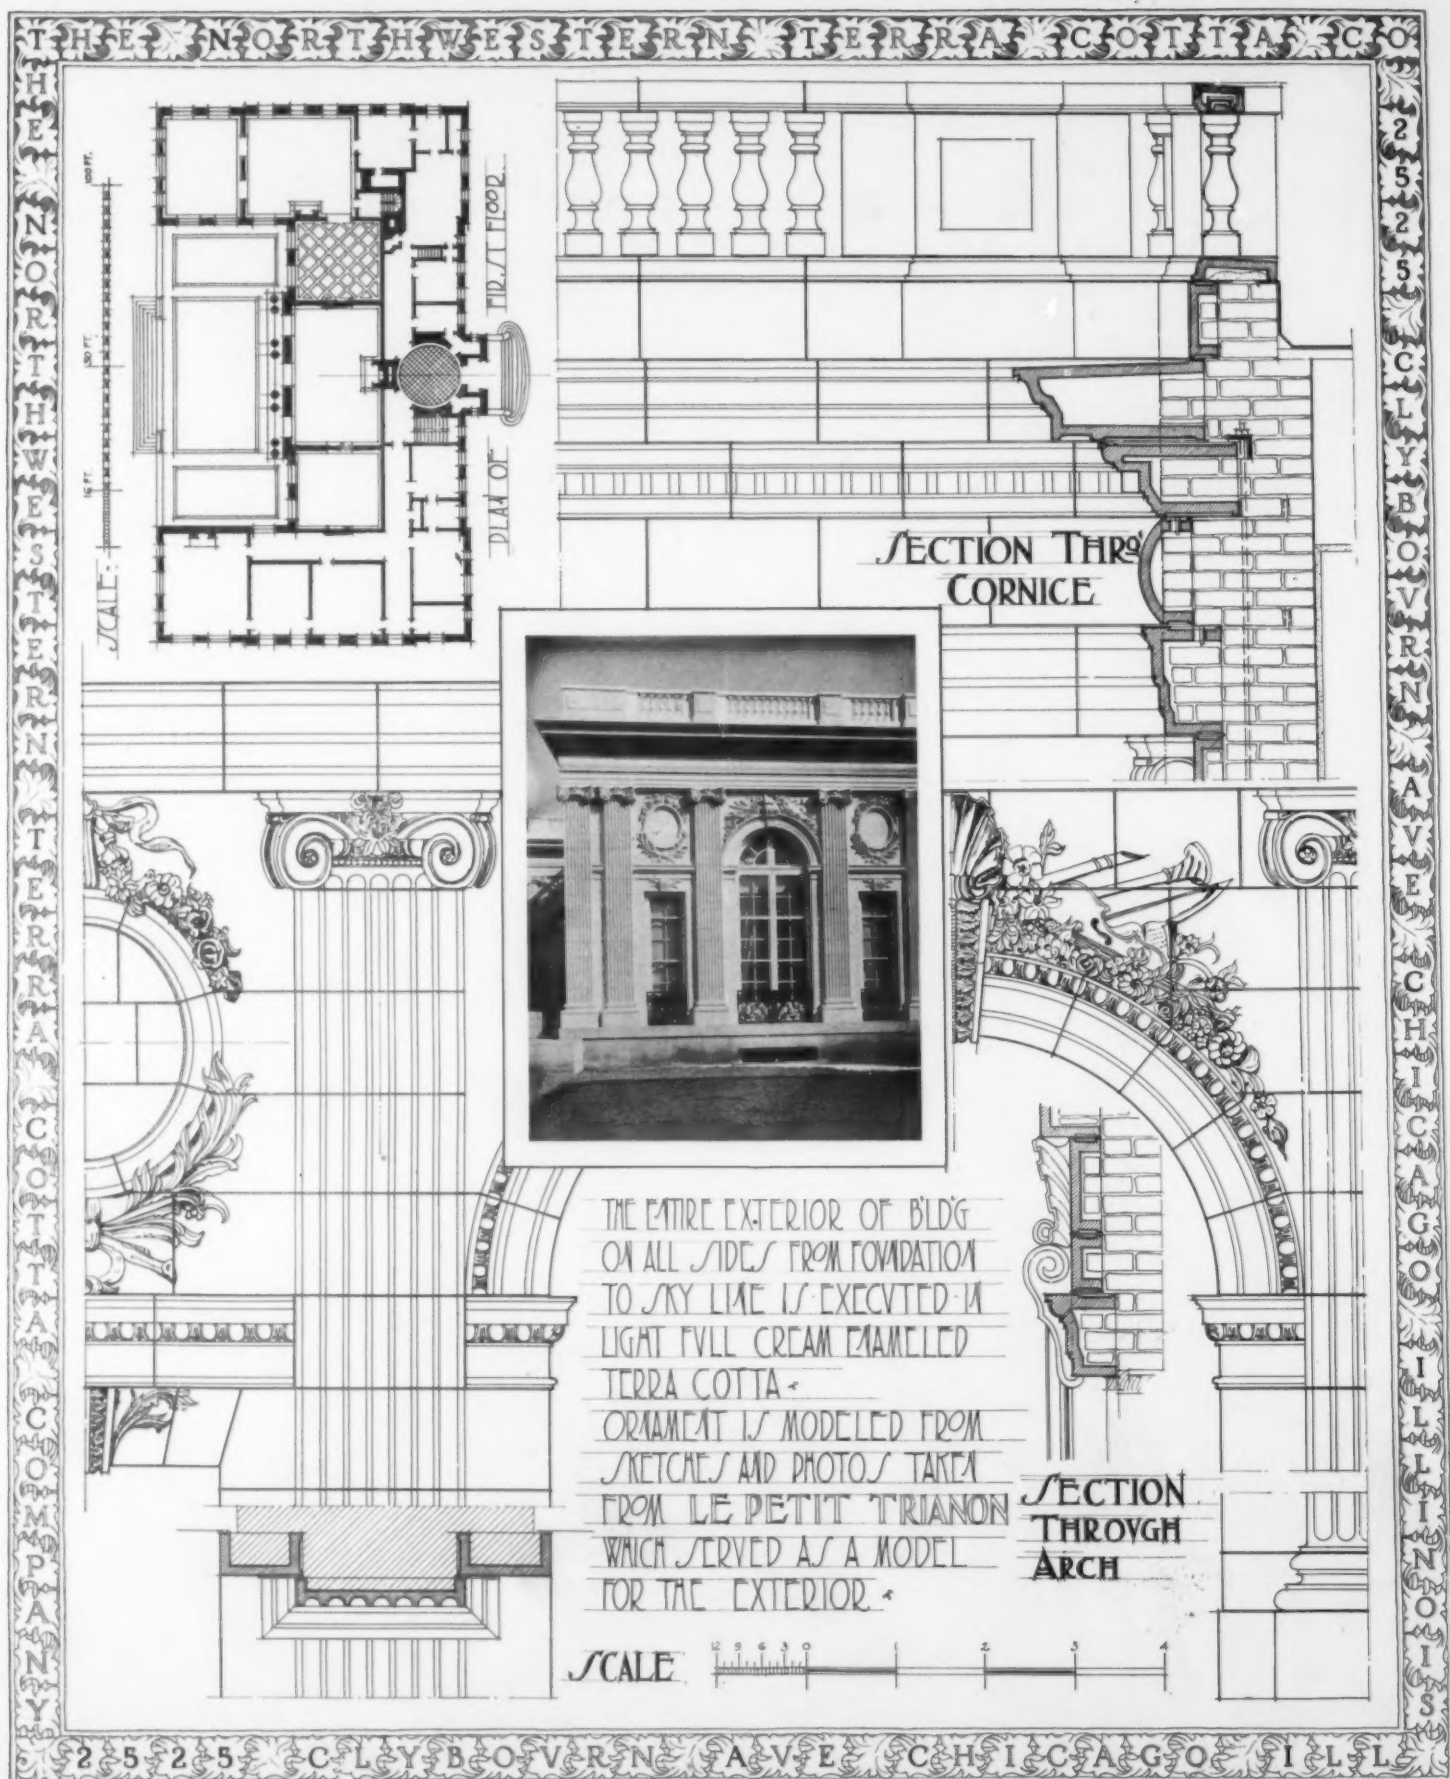 THE NORTHWESTERN TERRA COTTA CO
THE NORTHWESTERN TERRA COTTA COMPANY
2525 CLYBOVRN AVE CHICAGO ILLINOIS
2525 CLYBOVRN AVE CHICAGO ILL
SCALE:
16 FT.
50 FT.
100 FT.
PLAN OF FIRST FLOOR
SECTION THRO'
CORNICE
THE ENTIRE EXTERIOR OF B'LD'G
ON ALL SIDES FROM FOVNDATION
TO SKY LINE IS EXECVTED IN
LIGHT FVLL CREAM ENAMELED
TERRA COTTA
ORNAMENT IS MODELED FROM
SKETCHES AND PHOTOS TAKEN
FROM LE PETIT TRIANON
WHICH SERVED AS A MODEL
FOR THE EXTERIOR
SECTION
THROVGH
ARCH
SCALE
12 9 6 3 0 1 2 3 4